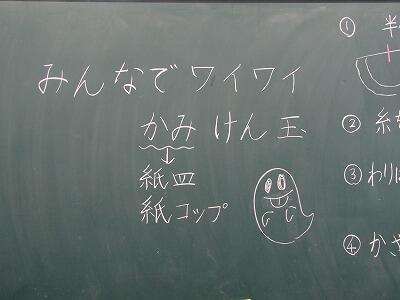 みんなでワイワイ
かみけん玉
紙皿
紙コップ
① 半
② 糸
③ わり
④ かざ